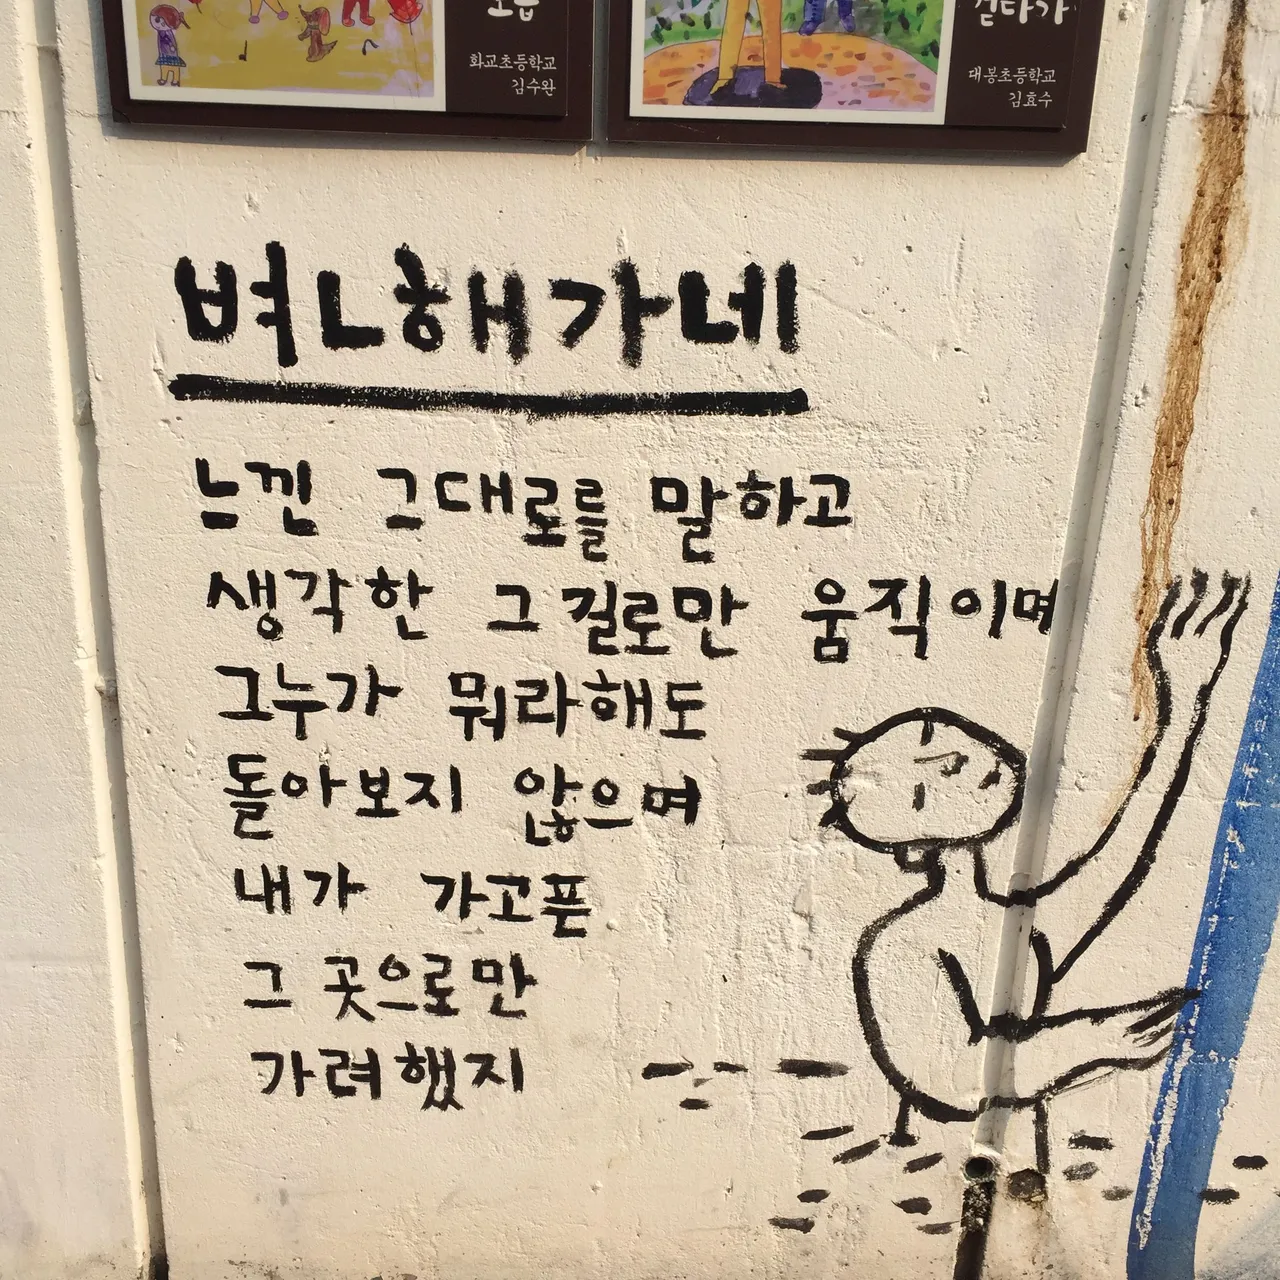 화교초등학교
김수완
대봉초등학교
김효수
변해가네
느낀 그대로를 말하고
생각한 그 길로만 움직이며
그누가 뭐라해도
돌아보지 않으며
내가 가고픈
그 곳으로만
가려했지